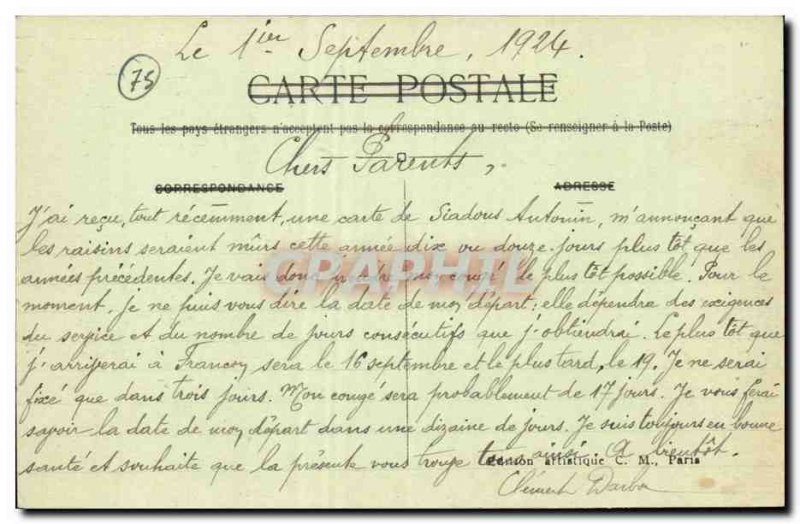 Le 1ier Septembre, 1924.
75
CARTE POSTALE
Tous les pays étrangers n'acceptent pas la correspondance au recto (Se renseigner à la Poste)
Chers Parents,
CORRESPONDANCE
ADRESSE
J'ai reçu, tout récemment, une carte de Siadous Antonin, m'annonçant que
les raisins seraient mûrs cette année dix ou douze jours plus tôt que les
années précédentes. Je vais donc prendre mon congé le plus tôt possible. Pour le
moment, je ne puis vous dire la date de mon départ; elle dépendra des exigences
du service et du nombre de jours consécutifs que j'obtiendrai. Le plus tôt que
j'arriverai à Francon sera le 16 septembre et le plus tard, le 19. Je ne serai
fixé que dans trois jours. Mon congé sera probablement de 17 jours. Je vous ferai
savoir la date de mon départ dans une dizaine de jours. Je suis toujours en bonne
santé et souhaite que la présente vous trouve tous ainsi. A bientôt.
Edition artistique C. M., Paris
Clément
CPARPHIL